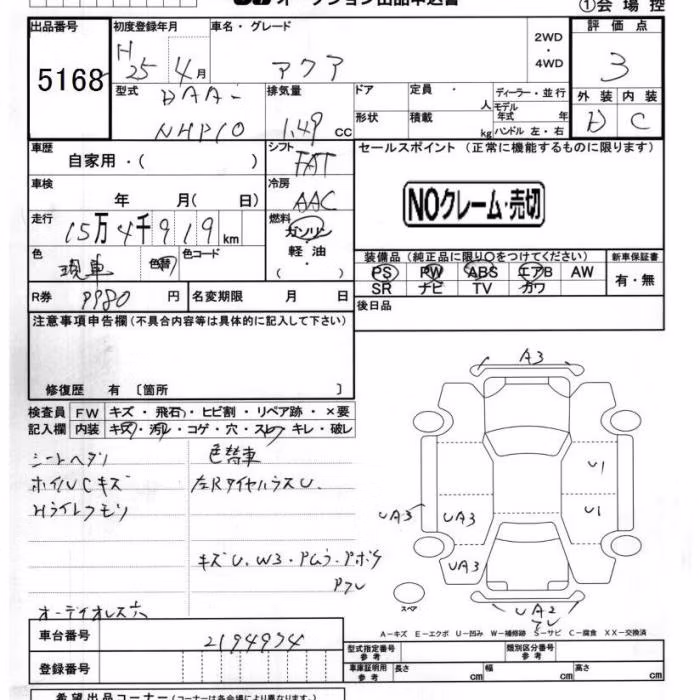 ①会場控
出品番号
5168
初度登録年月
H
25年 4月
車名・グレード
アクア
2WD
・
4WD
評価点
3
外装 内装
D C
型式
DAA-
NHP10
排気量
1.49 CC
ドア
形状
定員 ・ 人
積載 kg
ディーラー・並行
モデル年式 年
ハンドル 左・右
車歴
自家用・( )
シフト
FAT
車検
年 月( 日)
冷房
AAC
走行
15万4千919km
燃料
ガソリン
軽油
( ・ )
色
現車
色替
色コード
R券 9980 円
名変期限 月 日
セールスポイント (正常に機能するものに限ります)
NOクレーム・売切
装備品 (純正品に限り○をつけてください)
PS PW ABS エアB AW
SR ナビ TV カワ
新車保証書
有・無
後日品
注意事項申告欄 (不具合内容等は具体的に記入して下さい)
修復歴 有 〔箇所 〕
検査員 FW キズ・飛石・ヒビ割・リペア跡・×要
記入欄 内装 キズ・汚レ・コゲ・穴・スレ・キレ・破レ
シートヘタリ
ホイルUCキズ
Hライトクモリ
オーデイオレス穴
色替車
キズU.W3・Pムラ・Pボケ
A3
U1
U1
UA3
UA3
UA3
UA2
スペア
A−キズ E−エクボ U−凹み W−補修跡 S−サビ C−腐食 XX−交換済
車台番号 2194934
登録番号
型式指定番号
参考
類別区分番号
参考
車庫証明用
参考
長さ cm 幅 cm 高さ cm
希望出品コーナー